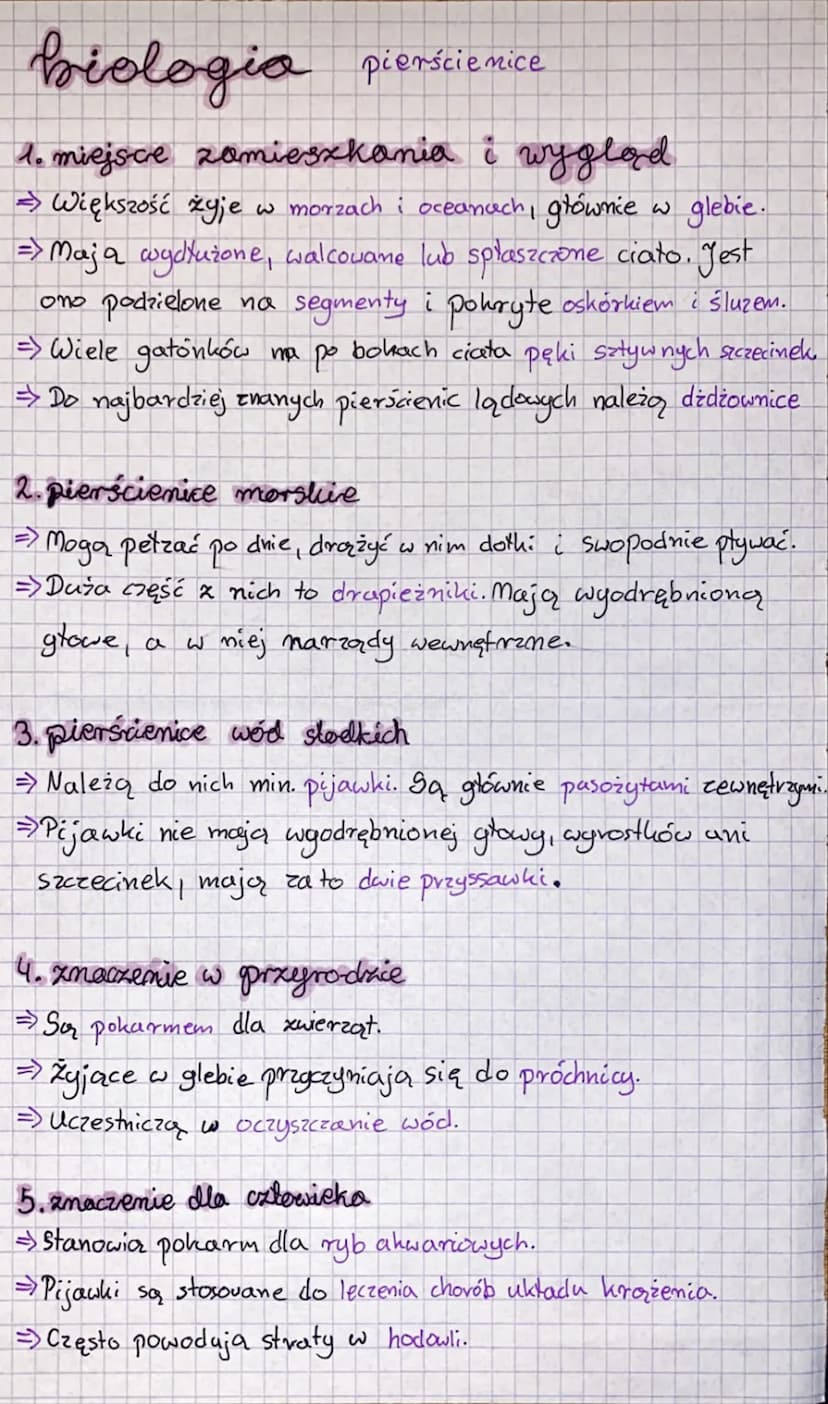 biologia pierścienice
1. miejsce zamieszkania i wygląd
⇒ Większość żyje w morzach i oceanach, głównie w glebie.
⇒ Mają wydłużone, walcowane lub spłaszczone ciało. Jest
ono podzielone na segmenty i pokryte oskórkiem i śluzem.
⇒ Wiele gatónków ma po bokach ciała pęki sztywnych szczecinek
⇒ Do najbardziej znanych pierścienic lądowych należą dżdżownice
2. pierścienice morskie
⇒ Mogą pełzać po dnie, drążyć w nim dołki i swopodnie pływać.
⇒ Duża część z nich to drapieżniki. Mają wyodrębnioną
głowe, a w niej narządy wewnętrzne.
3. pierścienice wód słodkich
⇒ Należą do nich min. pijawki. Są głównie pasożytami zewnętrzymi.
⇒ Pijawki nie mają wgodrębnionej głowy, wyrostków ani
szczecinek, mają za to dwie przyssawki.
4. znaczenie w przyrodzie
⇒ Są pokarmem dla zwierząt.
⇒ Żyjące w glebie przyczyniają się do próchnicy.
⇒ Uczestniczą w oczyszczanie wód.
5. znaczenie dla człowieka
⇒ Stanowią pokarm dla ryb akwariowych.
⇒ Pijawki są stosowane do leczenia chorób układu krążenia.
⇒ Często powodują straty w hodowli.